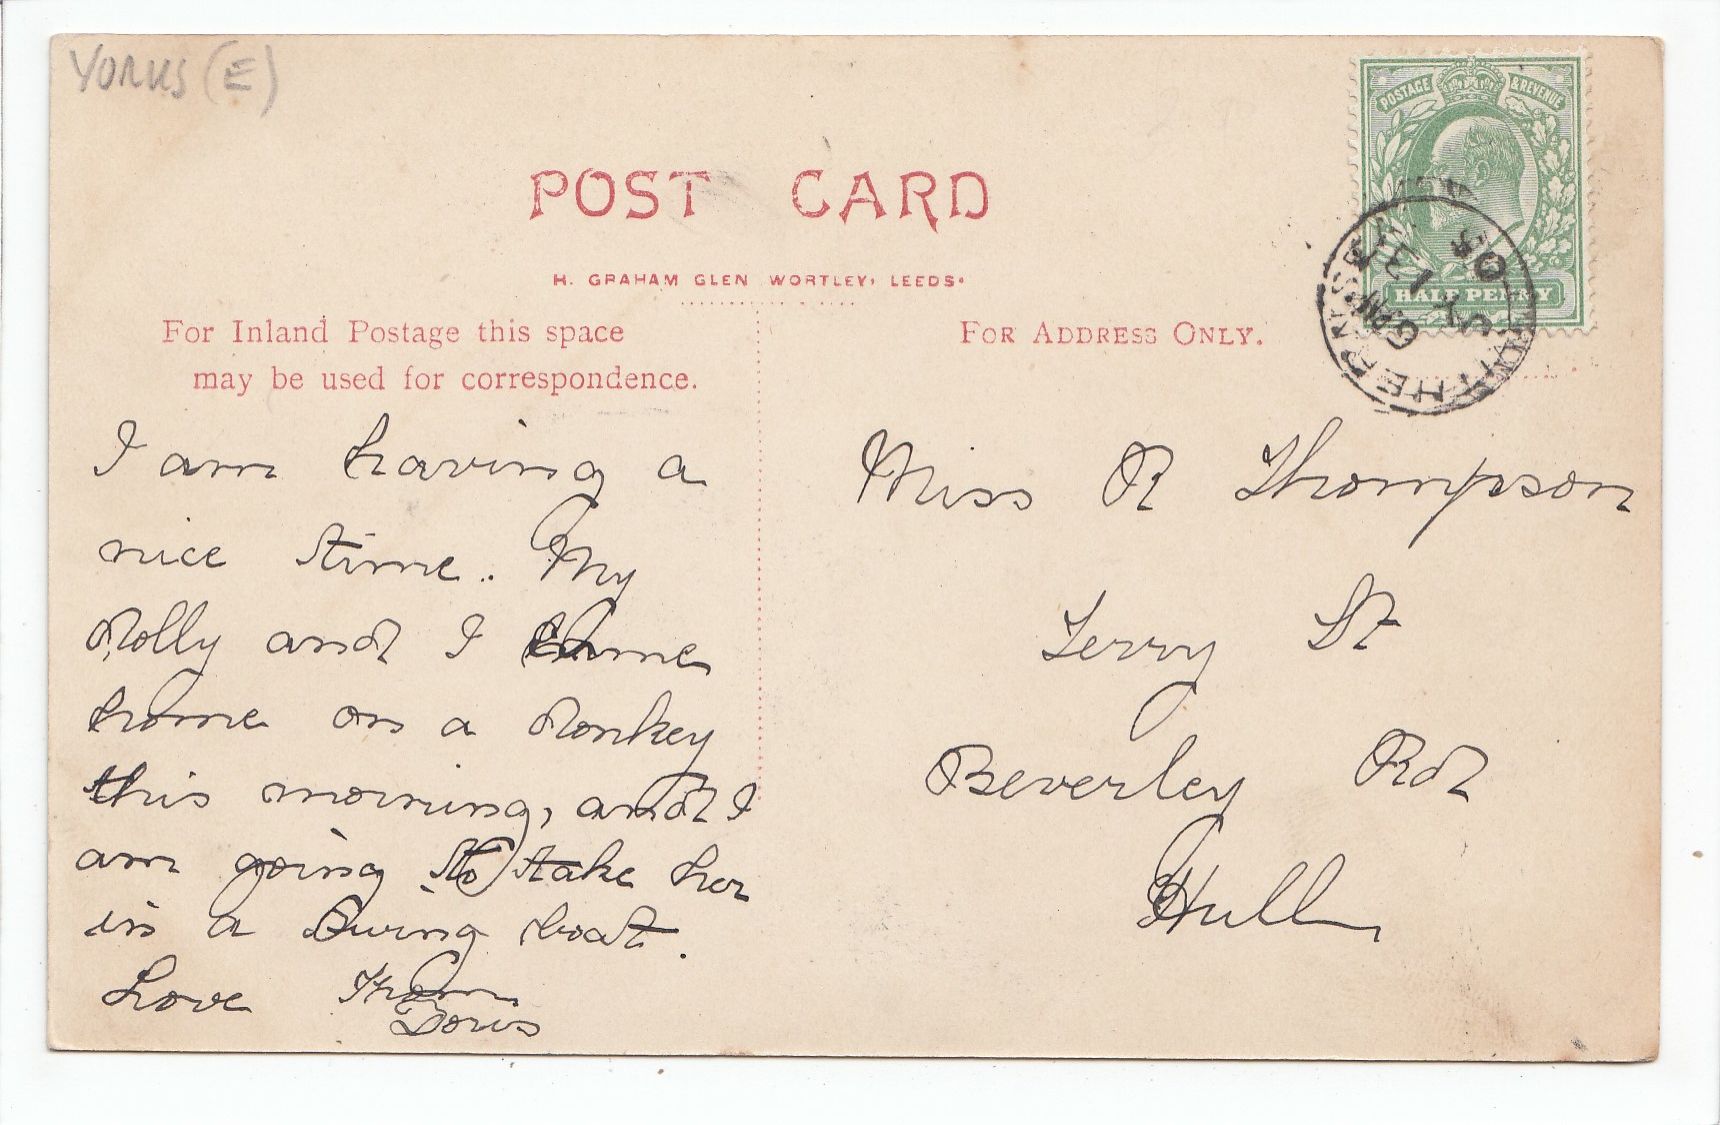 YORKS (E)
POST CARD
H. GRAHAM GLEN WORTLEY, LEEDS.
For Inland Postage this space
may be used for correspondence.
FOR ADDRESS ONLY.
POSTAGE & REVENUE
HALF PENNY
WITHERNSEA
JY 13
05
I am having a
nice time. My
dolly and I came
home on a donkey
this morning, and I
am going to take her
in a swing boat.
Love from
Doris
Miss R Thompson
Terry St
Beverley Rd
Hull